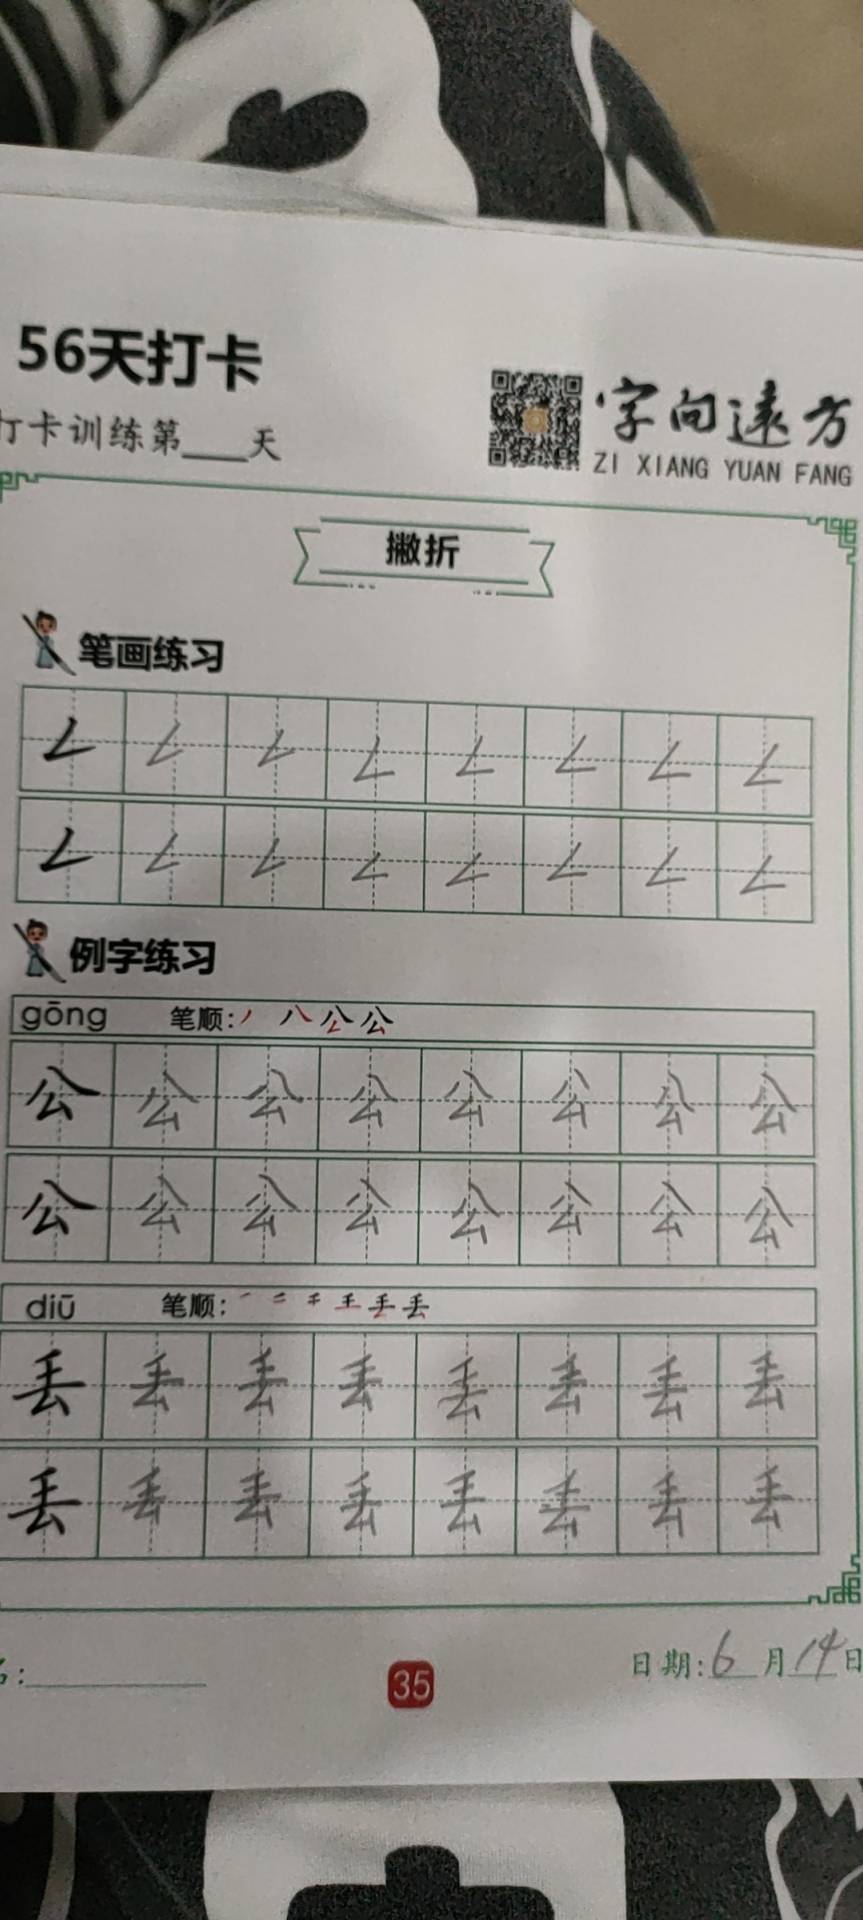 56天打卡
打卡训练第___天
字向遠方
ZI XIANG YUAN FANG
撇折
笔画练习
𠃋 𠃋 𠃋 𠃋 𠃋 𠃋 𠃋 𠃋
𠃋 𠃋 𠃋 𠃋 𠃋 𠃋 𠃋 𠃋
例字练习
gōng 笔顺:丿 八 公 公
公 公 公 公 公 公 公 公
公 公 公 公 公 公 公 公
diū 笔顺: 一 二 丢 丢
丢 丢 丢 丢 丢 丢 丢 丢
丢 丢 丢 丢 丢 丢 丢 丢
名:
35
日期:6月14日